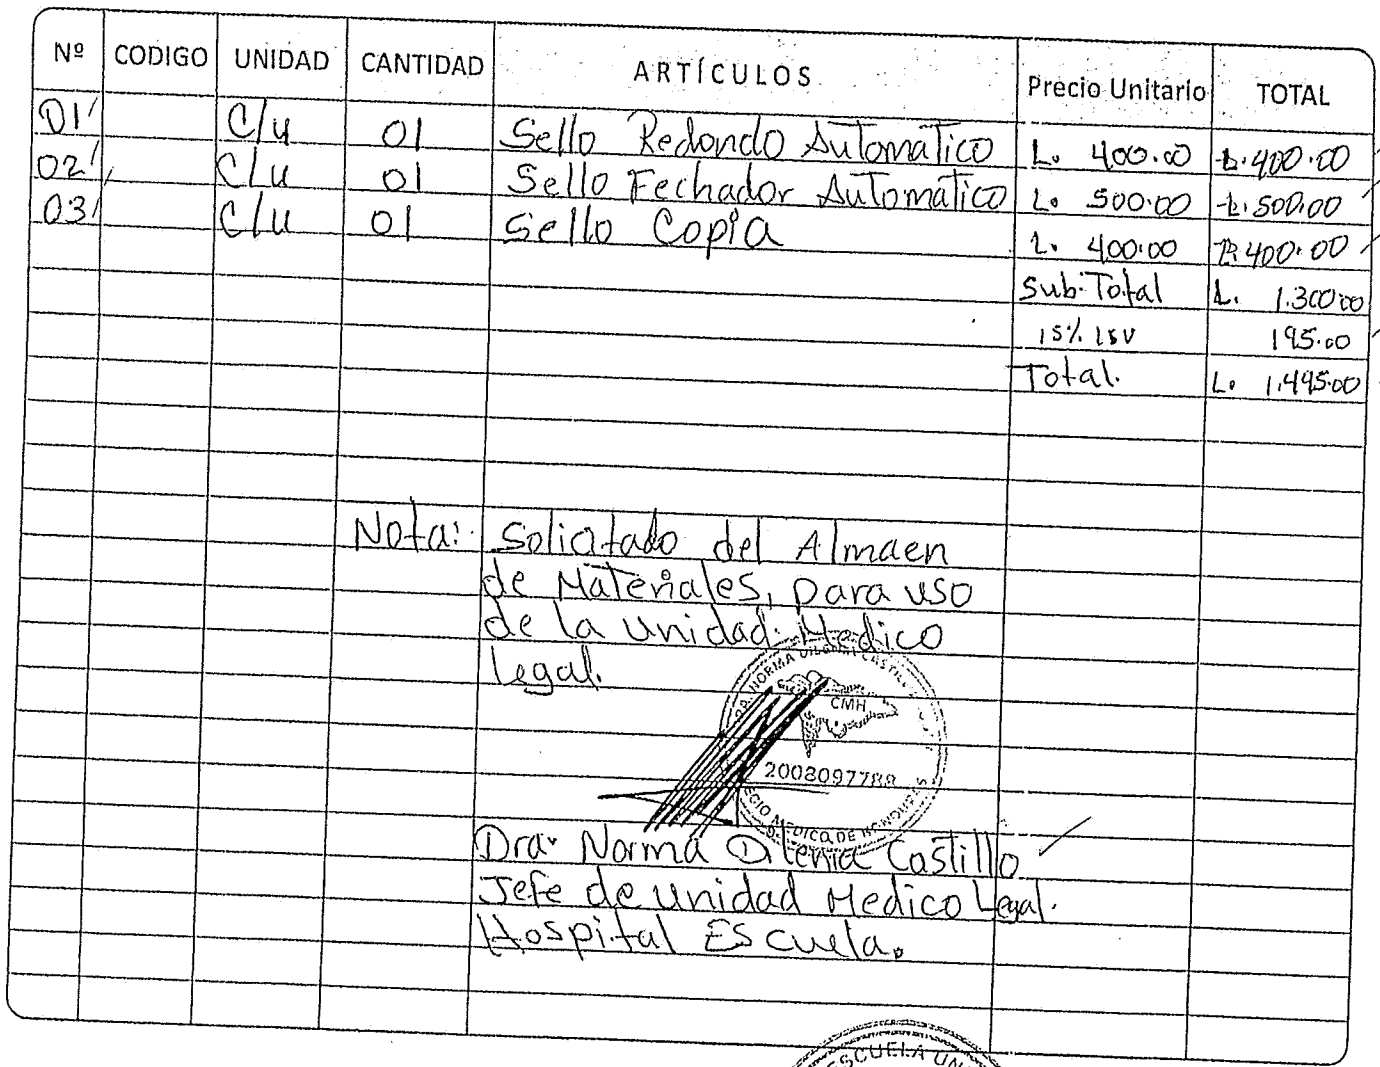 Nº CODIGO UNIDAD CANTIDAD ARTÍCULOS Precio Unitario TOTAL
01 C/u 01 Sello Redondo Automatico L. 400.00 L. 400.00
02 C/u 01 Sello Fechador Automatico L. 500.00 L. 500.00
03 C/u 01 Sello Copia L. 400.00 L. 400.00
Sub-Total L. 1.300.00
15% ISV 195.00
Total. L. 1.495.00
Nota: Solicitado del Almaen
de Materiales, para uso
de la unidad Medico
Legal.
NORMA
CMH
2008097788
MEDICO DE HONDURAS
Dra. Norma Dilenia Castillo
Jefe de unidad Medico Legal.
Hospital Escuela.
ESCUELA